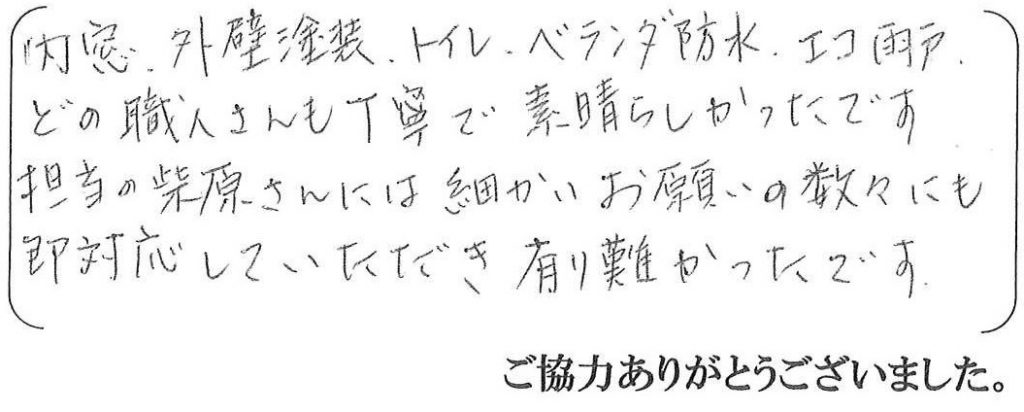 内窓、外壁塗装、トイレ、ベランダ防水、エコ雨戸、
どの職人さんも丁寧で素晴らしかったです
担当の柴原さんには細かいお願いの数々にも
即対応していただき有り難かったです。
ご協力ありがとうございました。